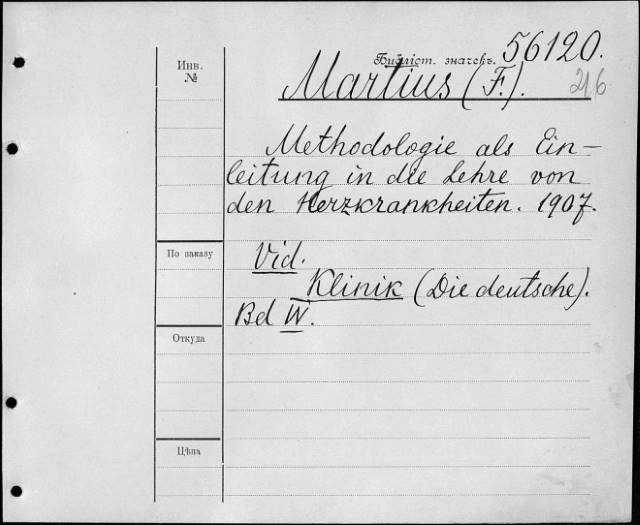 Инв.
№
Библіот. значекъ. 56120.
Martius (F.). 216
Methodologie als Ein-
leitung in die Lehre von
den Herzkrankheiten. 1907.
По заказу
Vid.
Klinik (Die deutsche).
Bd IV.
Откуда
Цѣна